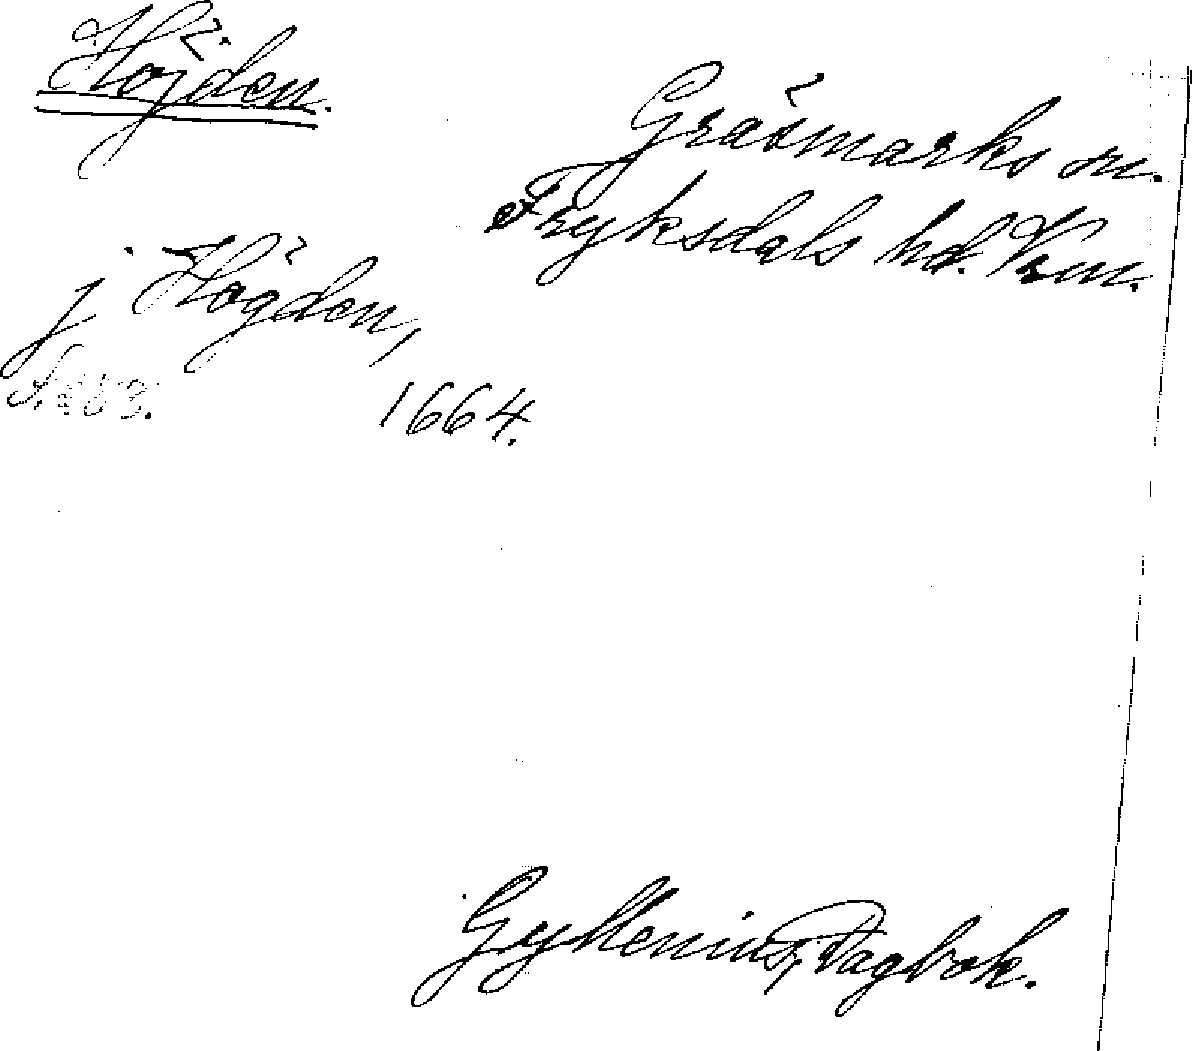 Höjden.
Gräsmarks sn.
Fryksdals hd. Vrm.
j Högden,
1664.
Gyllenius, Dagbok.